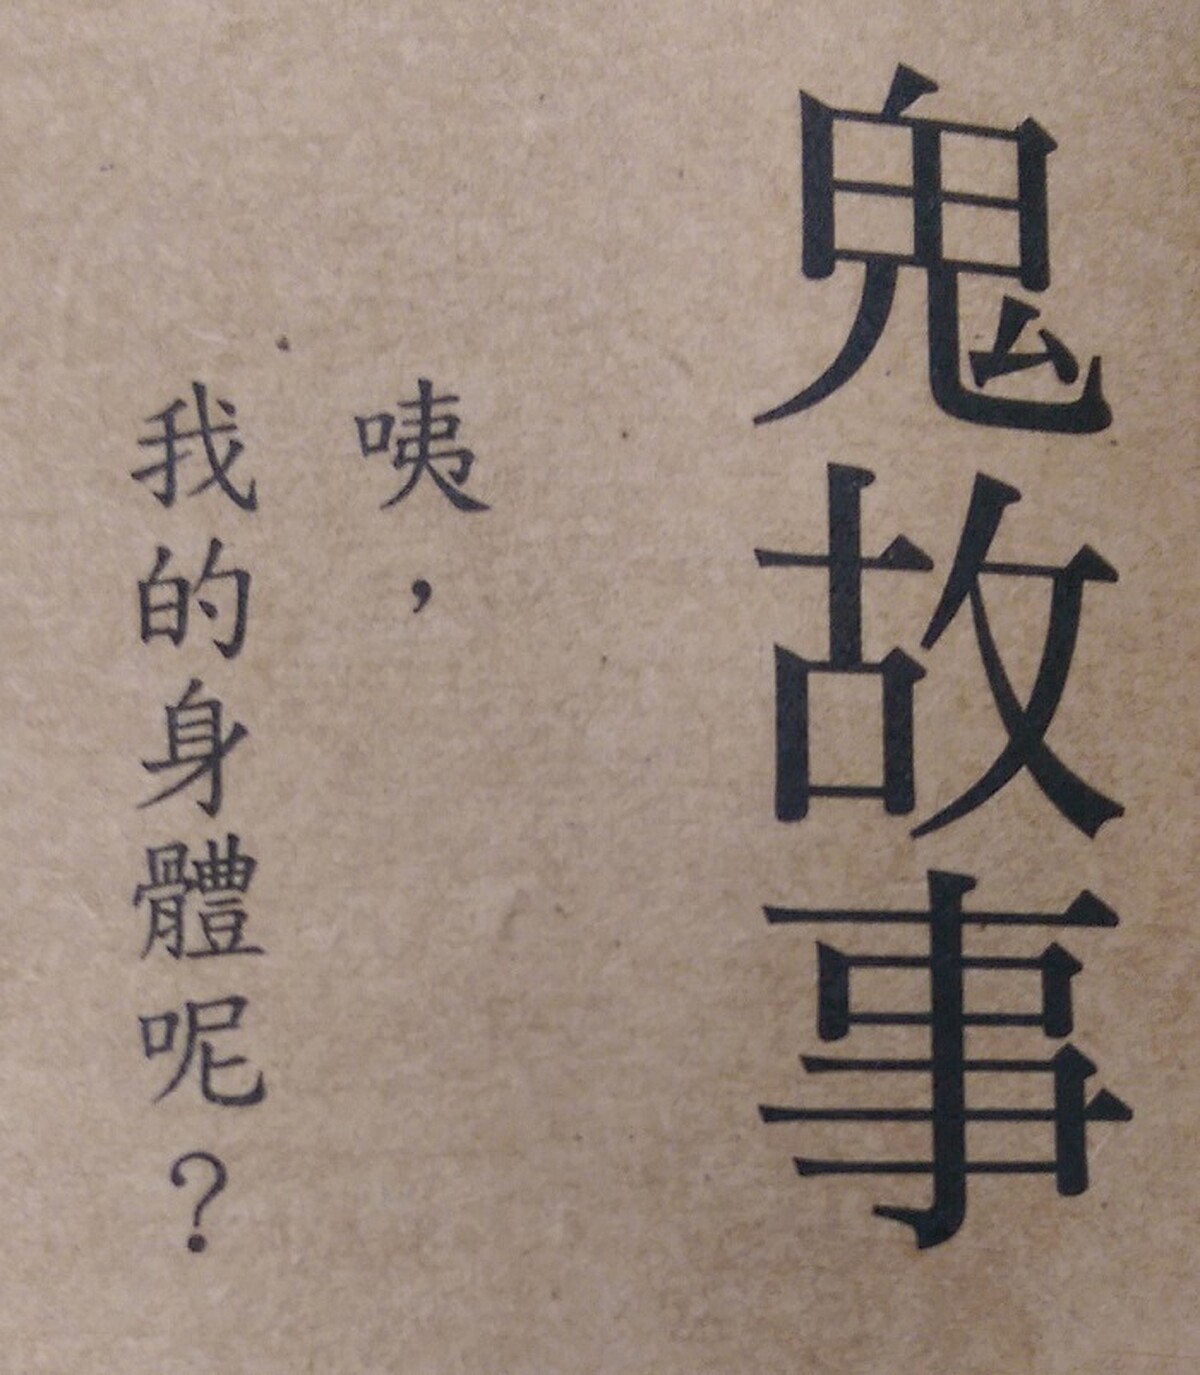 鬼故事
咦，
我的身體呢？